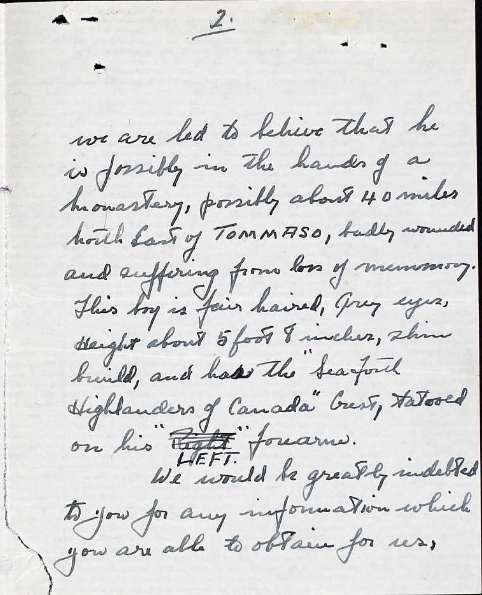 2.
we are led to believe that he
is possibly in the hands of a
monastery, possibly about 40 miles
North East of TOMMASO, badly wounded
and suffering from loss of memmory.
This boy is fair haired, Grey eyes,
Height about 5 foot 8 inches, slim
build, and has the "Seaforth
Highlanders of Canada" Crest, tatooed
on his "Right" forearm.
LEFT.
We would be greatly indebted
to you for any information which
you are able to obtain for us,